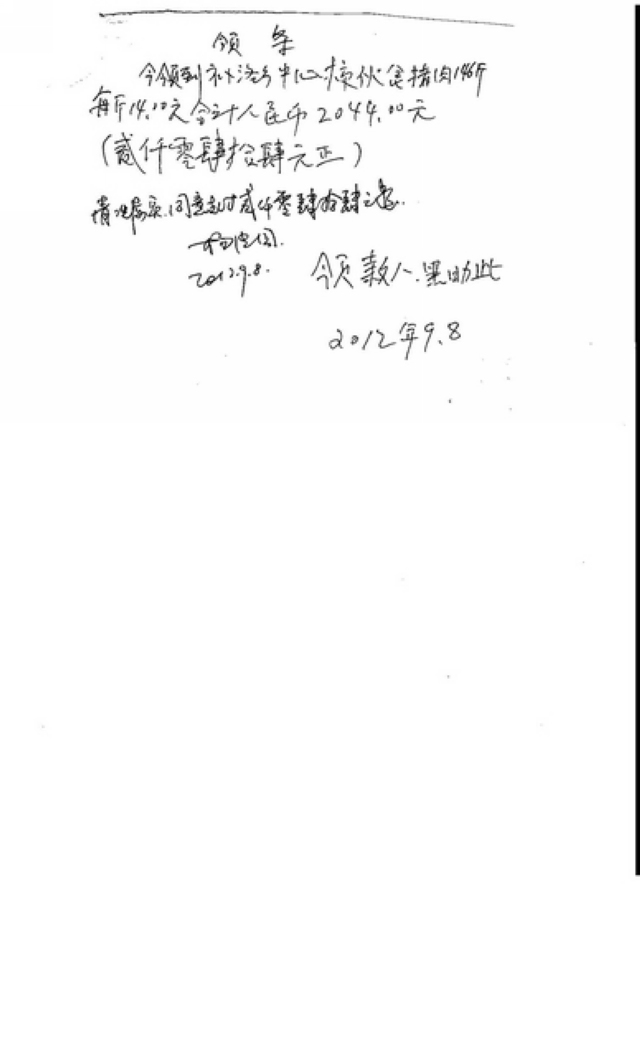 领条
今领到补洛乡中心校伙食猪肉146斤
每斤14.00元合计人民币2044.00元
(贰仟零肆拾肆元正)
情况属实.同意支付贰仟零肆拾肆元.
2012.9.8.
领款人.黑日此
2012年9.8